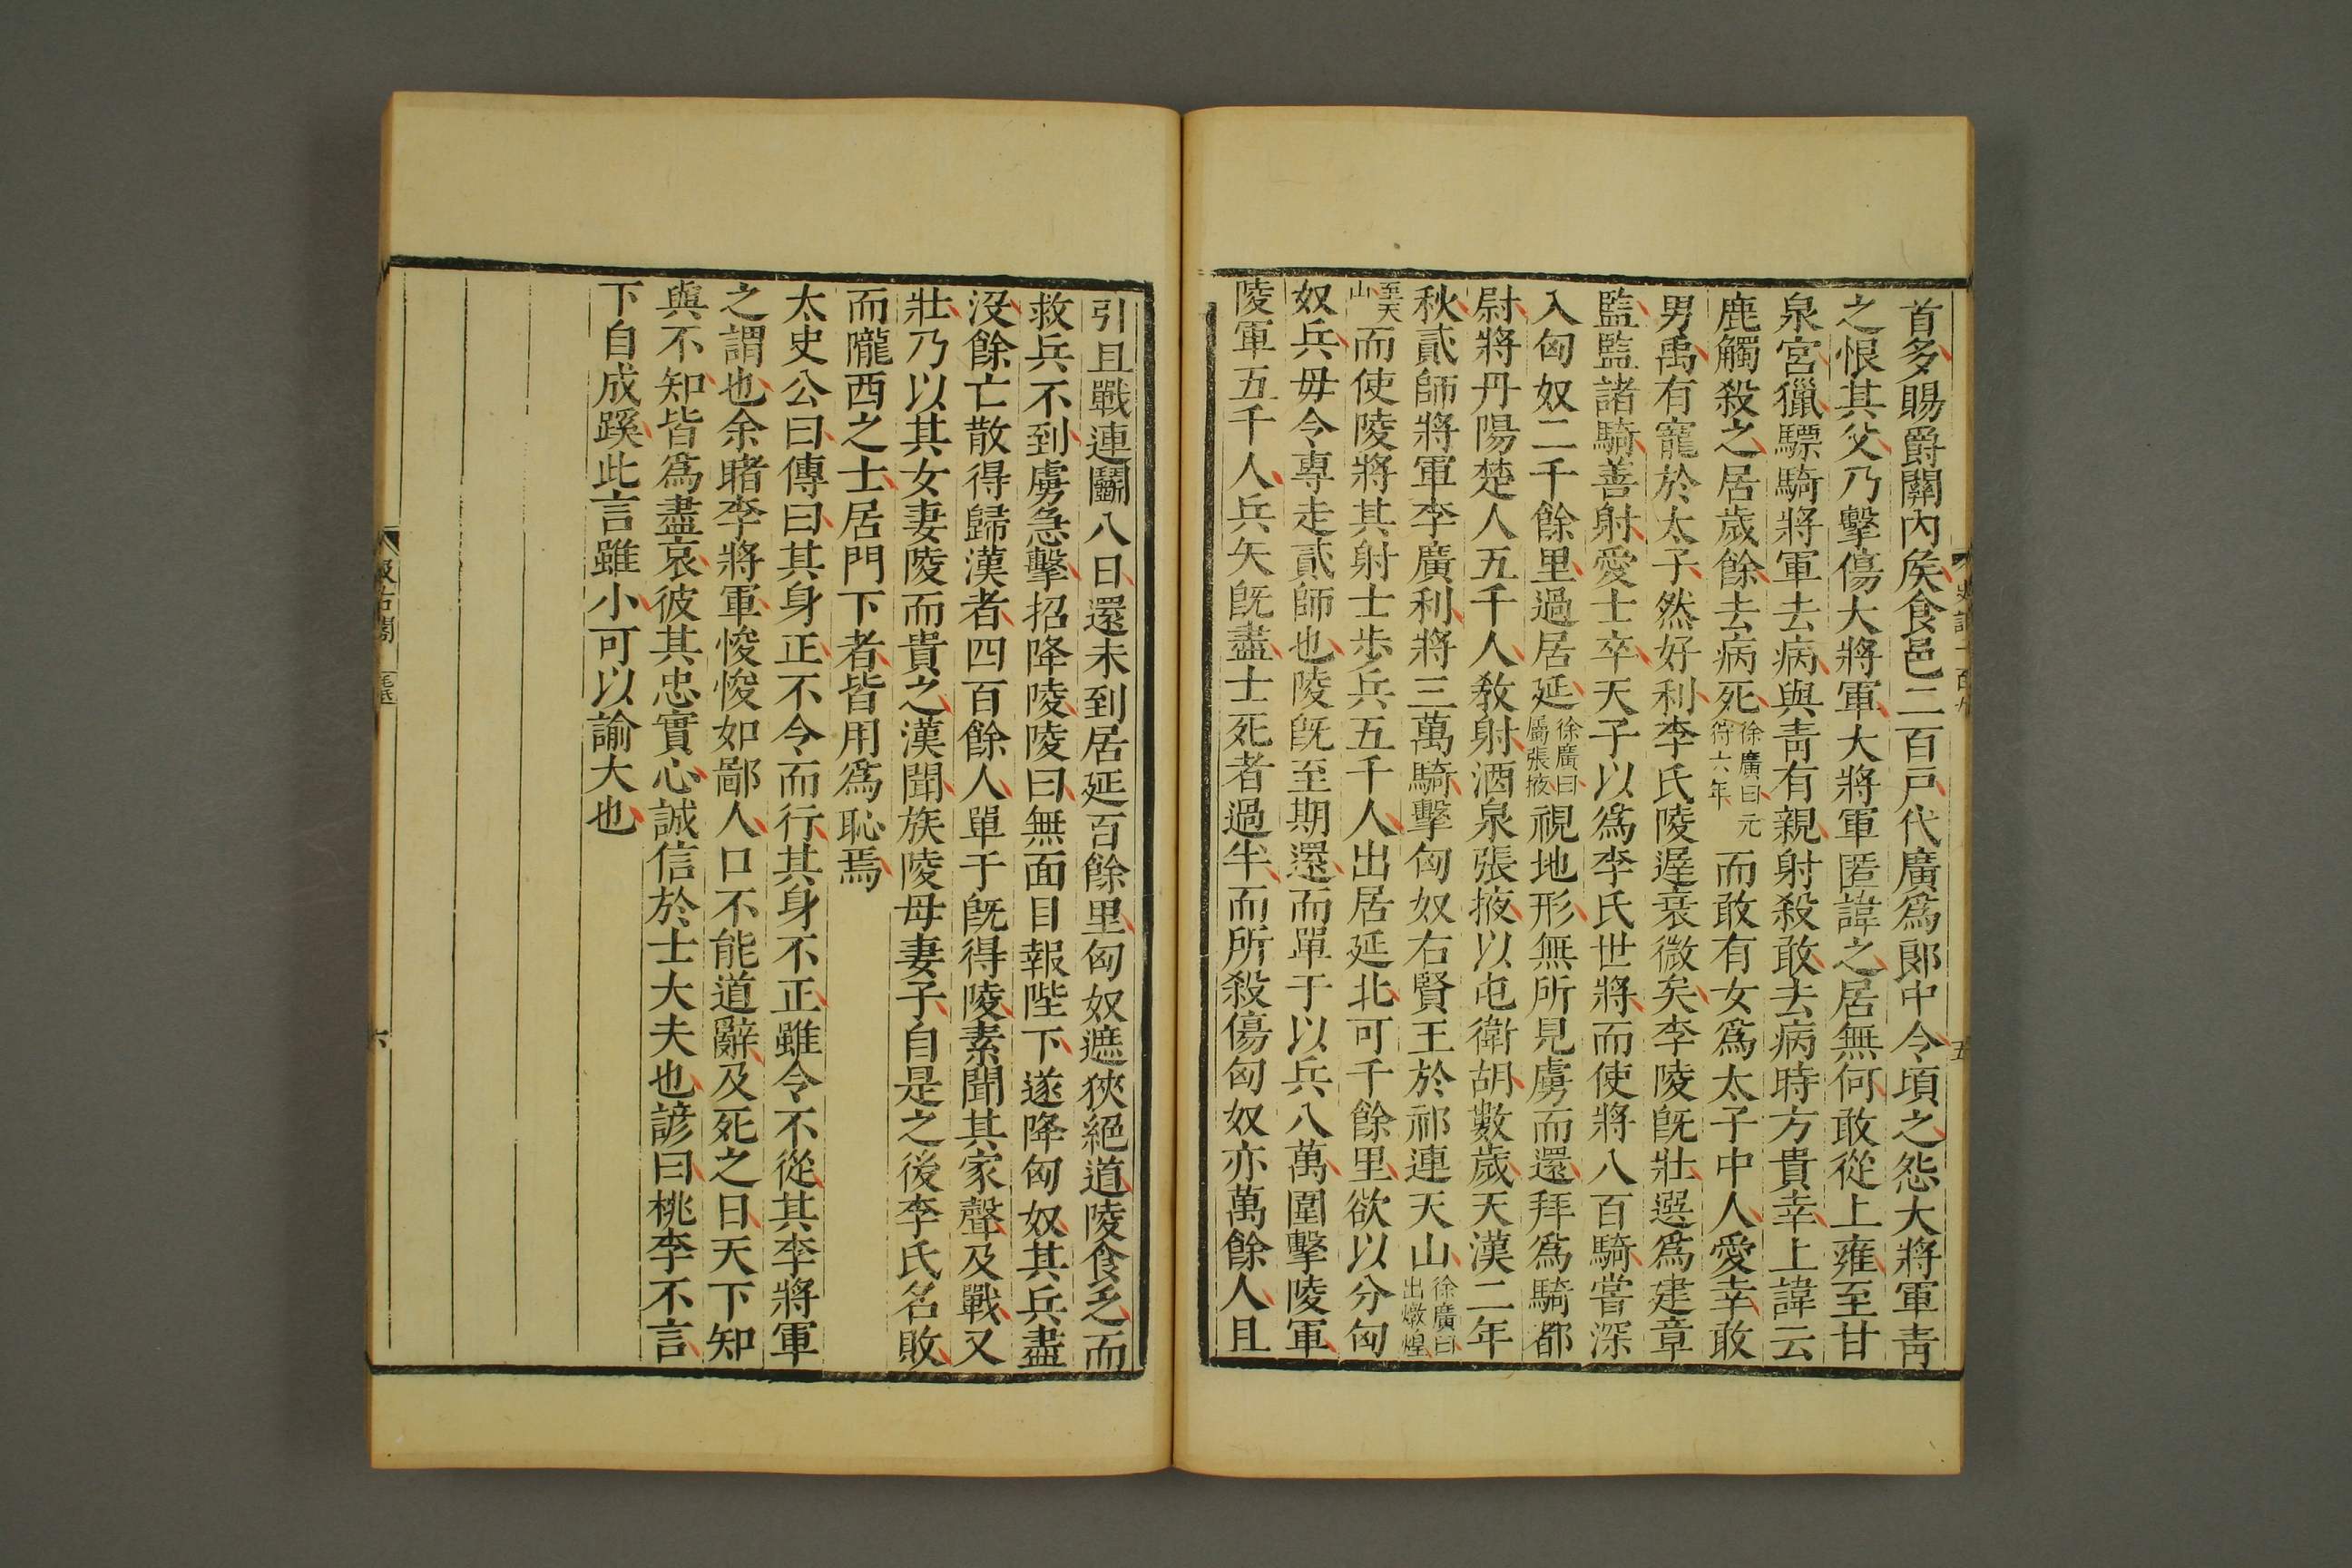 首多賜爵關內矦食邑二百戸代廣爲郞中令頃之怨大將軍靑
之恨其父乃擊傷大將軍大將軍匿諱之居無何敢從上雍至甘
泉宮獵驃騎將軍去病與靑有親射殺敢去病時方貴幸上諱云
鹿觸殺之居歲餘去病死徐廣曰元狩六年而敢有女爲太子中人愛幸敢
男禹有寵於太子然好利李氏陵遲衰微矣李陵旣壯選爲建章
監監諸騎善射愛士卒天子以爲李氏世將而使將八百騎嘗深
入匈奴二千餘里過居延徐廣曰屬張掖視地形無所見虜而還拜爲騎都
尉將丹陽楚人五千人敎射酒泉張掖以屯衛胡數歲天漢二年
秋貳師將軍李廣利將三萬騎擊匈奴右賢王於祁連天山徐廣曰出燉煌
至天山而使陵將其射士步兵五千人出居延北可千餘里欲以分匈
奴兵毋令專走貳師也陵旣至期還而單于以兵八萬圍擊陵軍
陵軍五千人兵矢旣盡士死者過半而所殺傷匈奴亦萬餘人且
引且戰連鬭八日還未到居延百餘里匈奴遮狹絕道陵食乏而
救兵不到虜急擊招降陵陵曰無面目報陛下遂降匈奴其兵盡
沒餘亡散得歸漢者四百餘人單于旣得陵素聞其家聲及戰又
壯乃以其女妻陵而貴之漢聞族陵母妻子自是之後李氏名敗
而隴西之士居門下者皆用爲恥焉
太史公曰傳曰其身正不令而行其身不正雖令不從其李將軍
之謂也余睹李將軍悛悛如鄙人口不能道辭及死之日天下知
與不知皆爲盡哀彼其忠實心誠信於士大夫也諺曰桃李不言
下自成蹊此言雖小可以諭大也
六